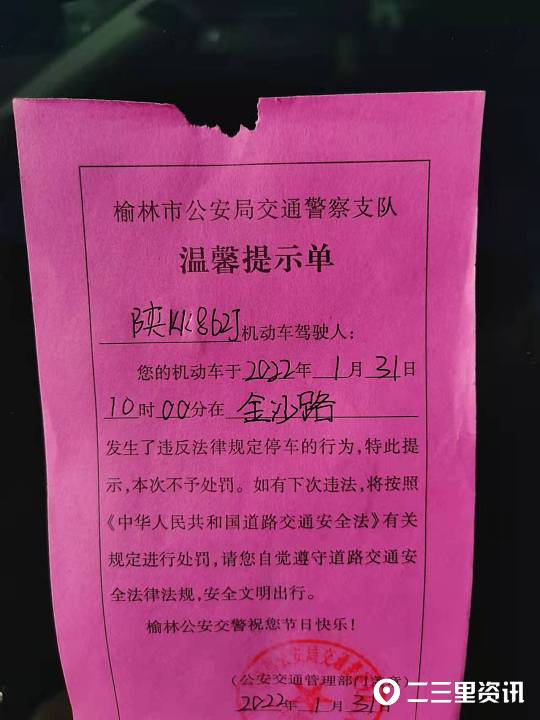 榆林市公安局交通警察支队
温馨提示单
陕KK862J机动车驾驶人：
您的机动车于2022年1月31日
10时00分在金沙路
发生了违反法律规定停车的行为，特此提
示，本次不予处罚。如有下次违法，将按照
《中华人民共和国道路交通安全法》有关
规定进行处罚，请您自觉遵守道路交通安
全法律法规，安全文明出行。
榆林公安交警祝您节日快乐！
（公安交通管理部门盖章）
2022年1月31日
二三里资讯